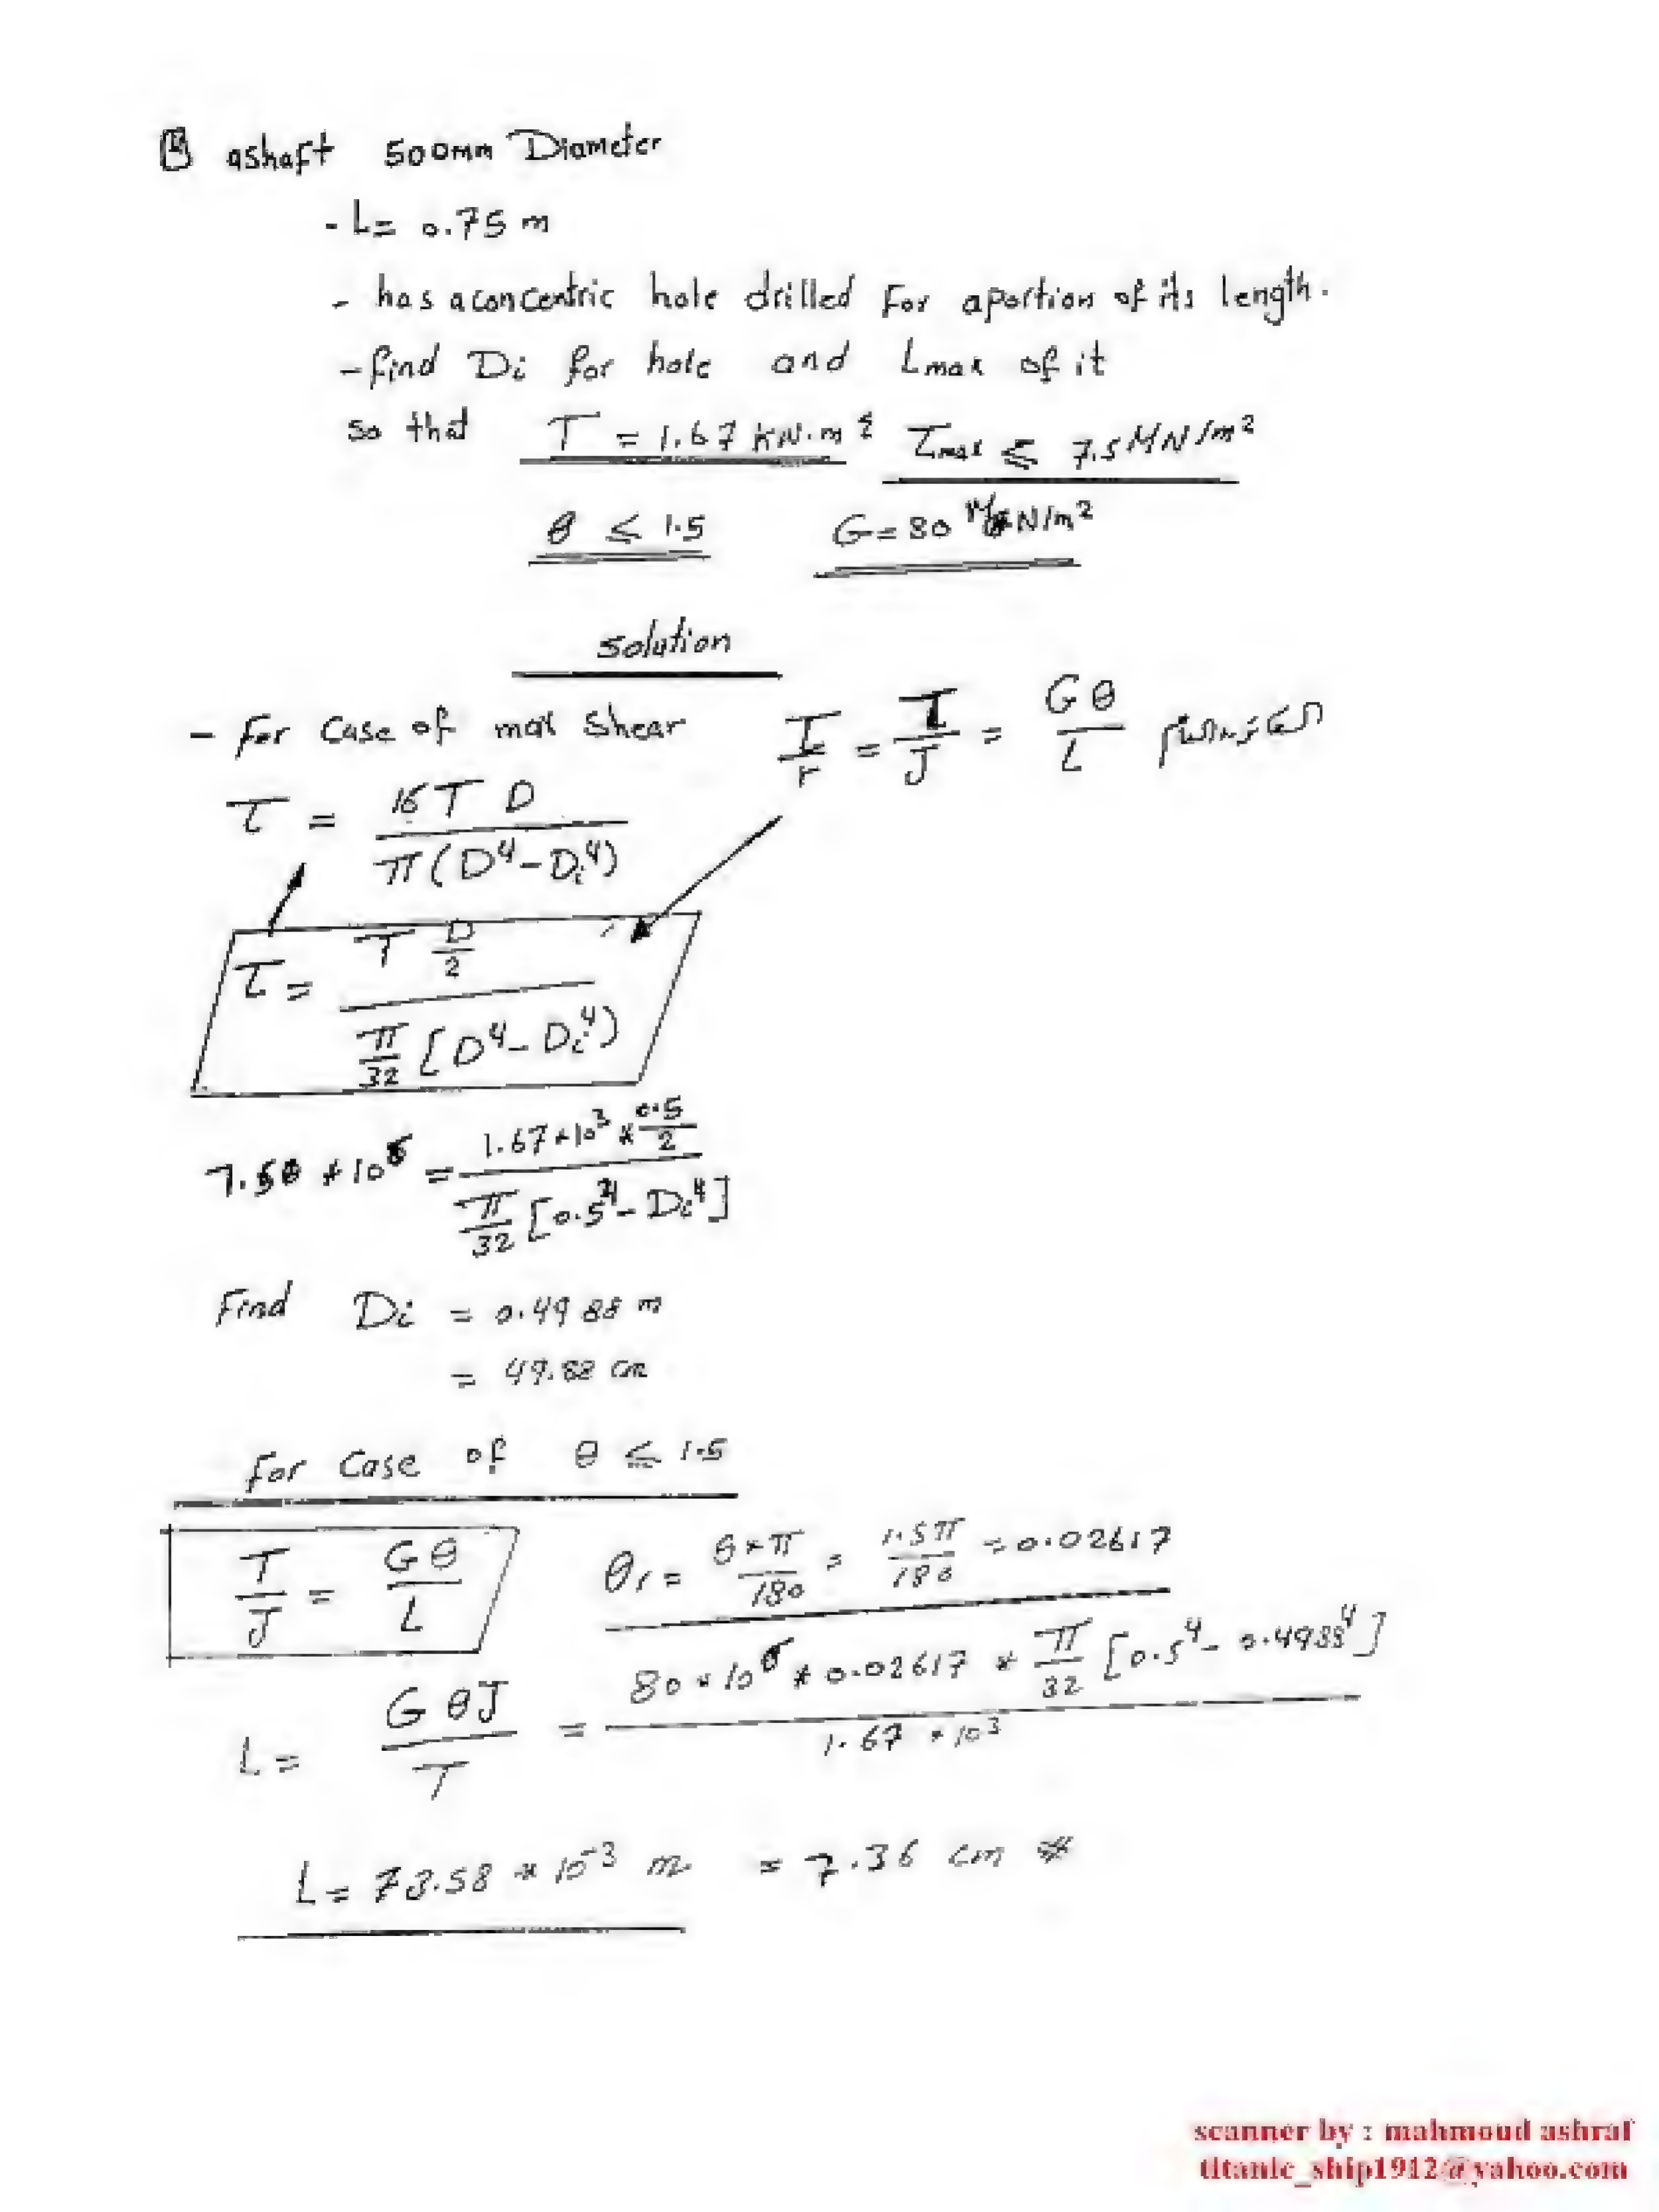 ashaft 500mm Diameter
- L= 0.75 m
- has a concentric hole drilled For aportion of its length.
- find Di for hole and Lmax of it
so that T = 1.67 KN.m τmax ≤ 7.5 MN/m²
θ ≤ 1.5 G = 80 N/m²
solution
- For Case of max Shear τ/r = T/J = Gθ/L
τ = 16 T D / π(D⁴-Di⁴)
τ = T D/2 / π/32 [D⁴-Di⁴)
= 1.67*10³*0.5/2 / π/32 [0.5⁴-Di⁴]
Find Di = 0.4988 m
= 49.88 cm
For Case of θ ≤ 1.5
T/J = Gθ/L θr = θ*π/180 = 1.5π/180 = 0.02617
L = GθJ/T = 80*10⁶*0.02617*π/32 [0.5⁴-0.4988⁴] / 1.67*10³
L = 73.58*10⁻³ m = 7.36 cm #
scanner by : mahmoud ashraf
titanic_ship1912@yahoo.com